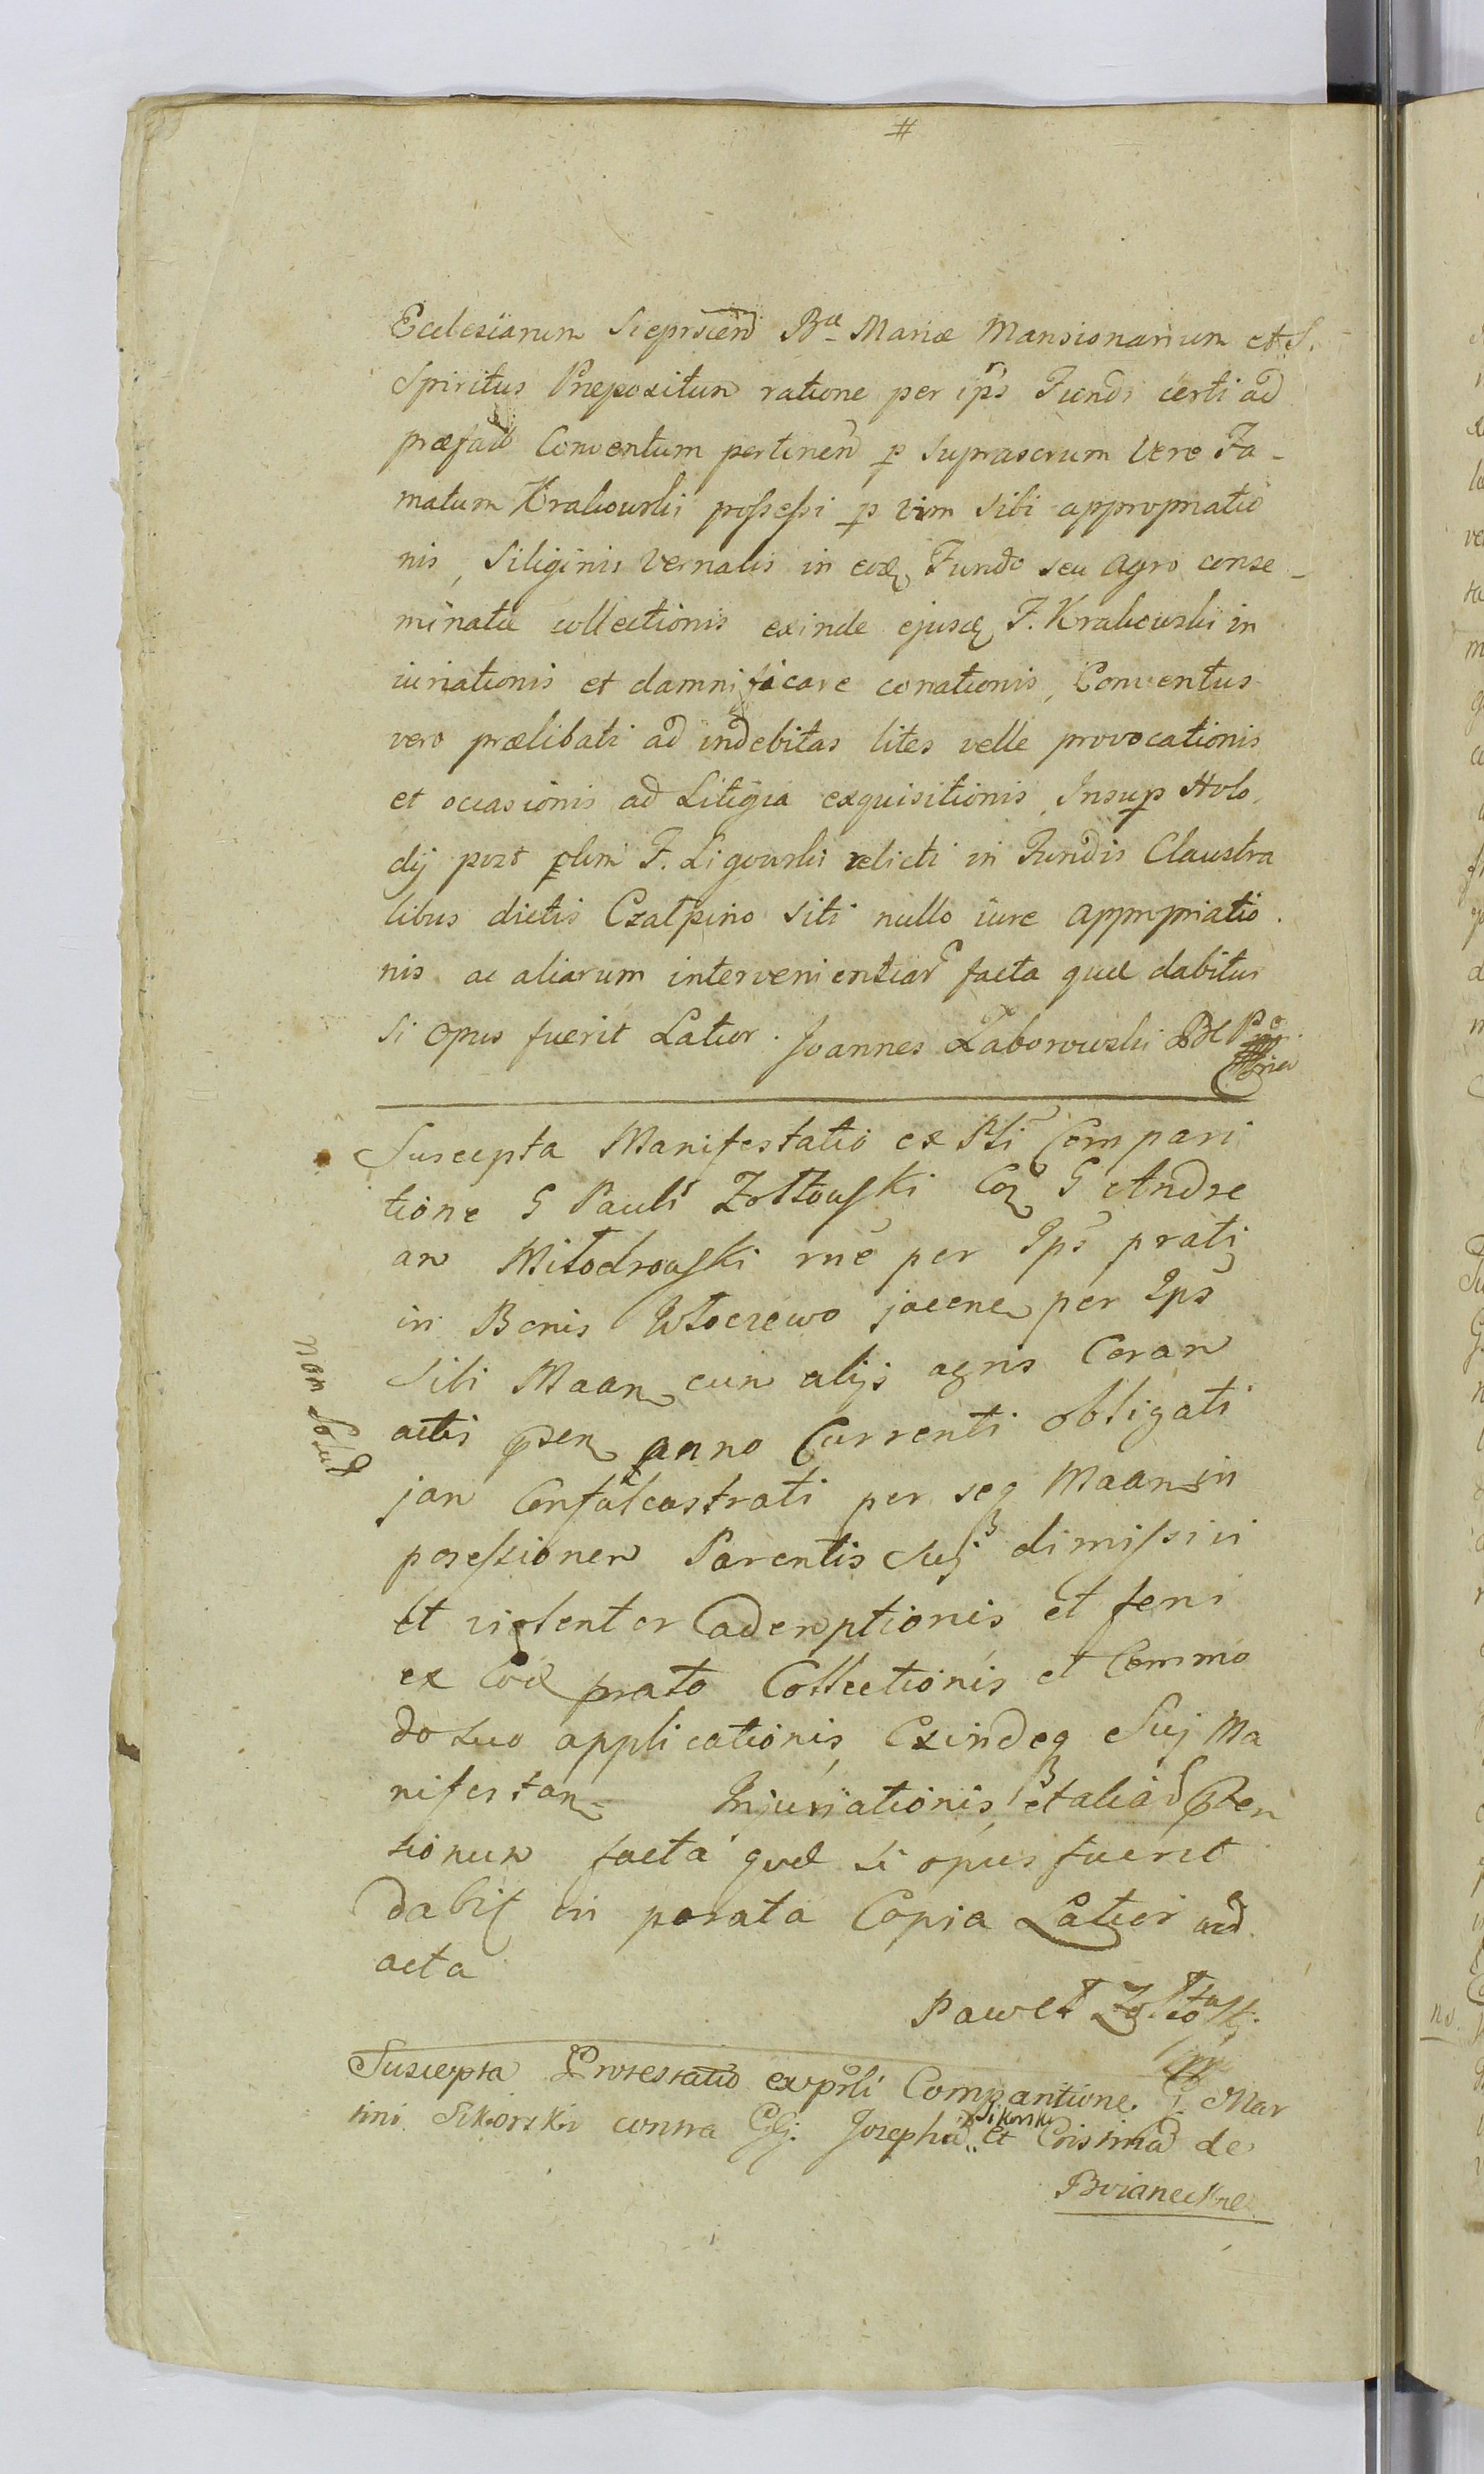 #
Ecclesiarum Sieprscien Bae Mariæ Mansionarium et S.
Spiritus Præpositum ratione per ips Fundi certi ad
præfatu Conventum pertinen p suprascrum vere Fa-
matum Krakowski possessi p vim sibi appropriatio
nis, Siliginis vernalis in eod Fundo seu agro conse-
minatæ collectionis exinde ejusd F. Krakowski in
iuriationis et damnificare conationis, Conventus
vero prælibati ad indebitas lites velle provocationis
et occasionis ad Litigia exquisitionis, Insup Holo
dij post olim F. Ligowski relicti in Fundis Claustra
libus dictis Czatpino siti nullo iure appropriatio
nis ac aliarum intervenientiar facta quæ dabitur
si opus fuerit Latior. Joannes Zaborowski
Suscepta Manifestatio ex Psli Compari
tione G Pauli Zołtowski Coz G Andre
am Miłodrowski rne per Ips prati
in Bonis Włoczewo jacene per Ips
Sibi Maan cum alijs agris Coram
actis psen anno Currenti obligati
non Solut
jam Confalcastrati per seq Maan in
possessionem Parentis Suj dimissivi
et violenter ademptionis et feni
ex Eod prato Collectionis et Commo
do suo applicationis, Exindeq Suj Ma
nifestan= Injuriationis, et aliar Pten
sionum facta quæ si opus fuerit
dabit in parata Copia Latior ad
acta
Paweł Zołtowski
Suscepta Protestatio ex prsli Comparitione G. Mar
tini Sikorski contra GG. Josephu Sikorski et Cristina de
Boianeckie